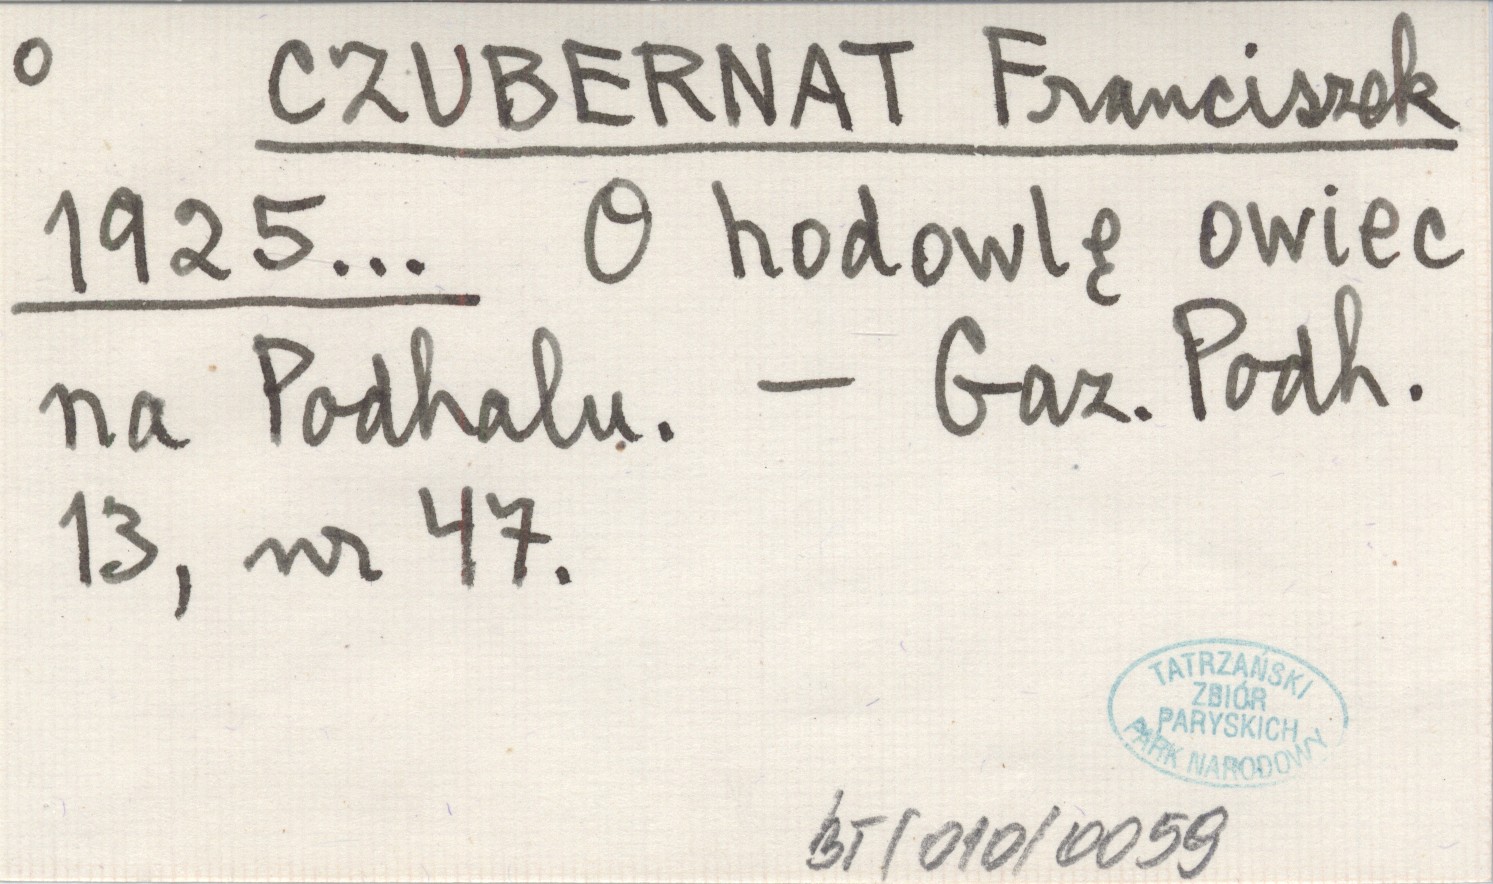 o CZUBERNAT Franciszek
1925... O hodowlę owiec
na Podhalu. — Gaz. Podh.
13, nr 47.
TATRZAŃSKI
ZBIÓR
PARYSKICH
PARK NARODOWY
BT/010/0059